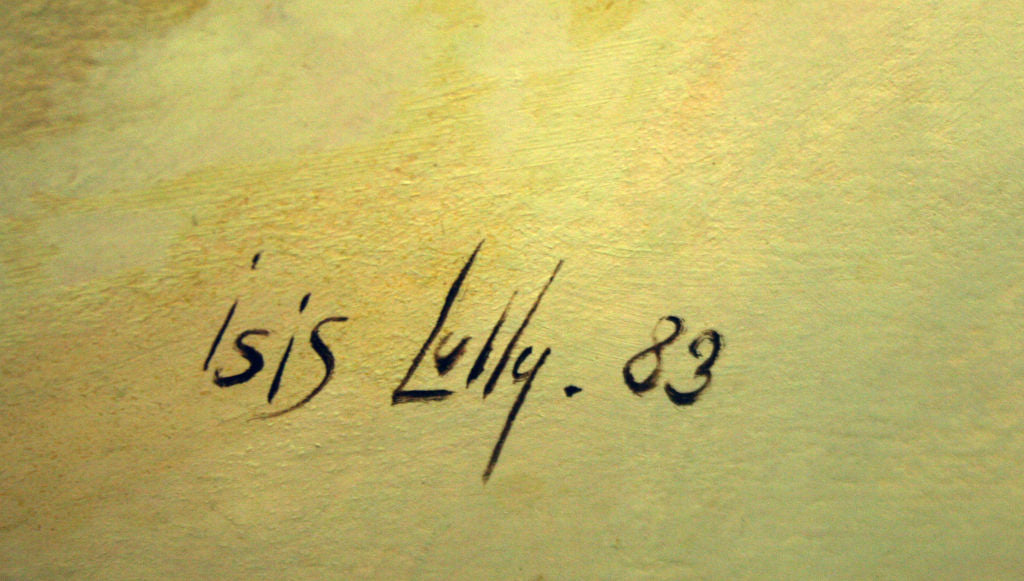 isis Lully. 83